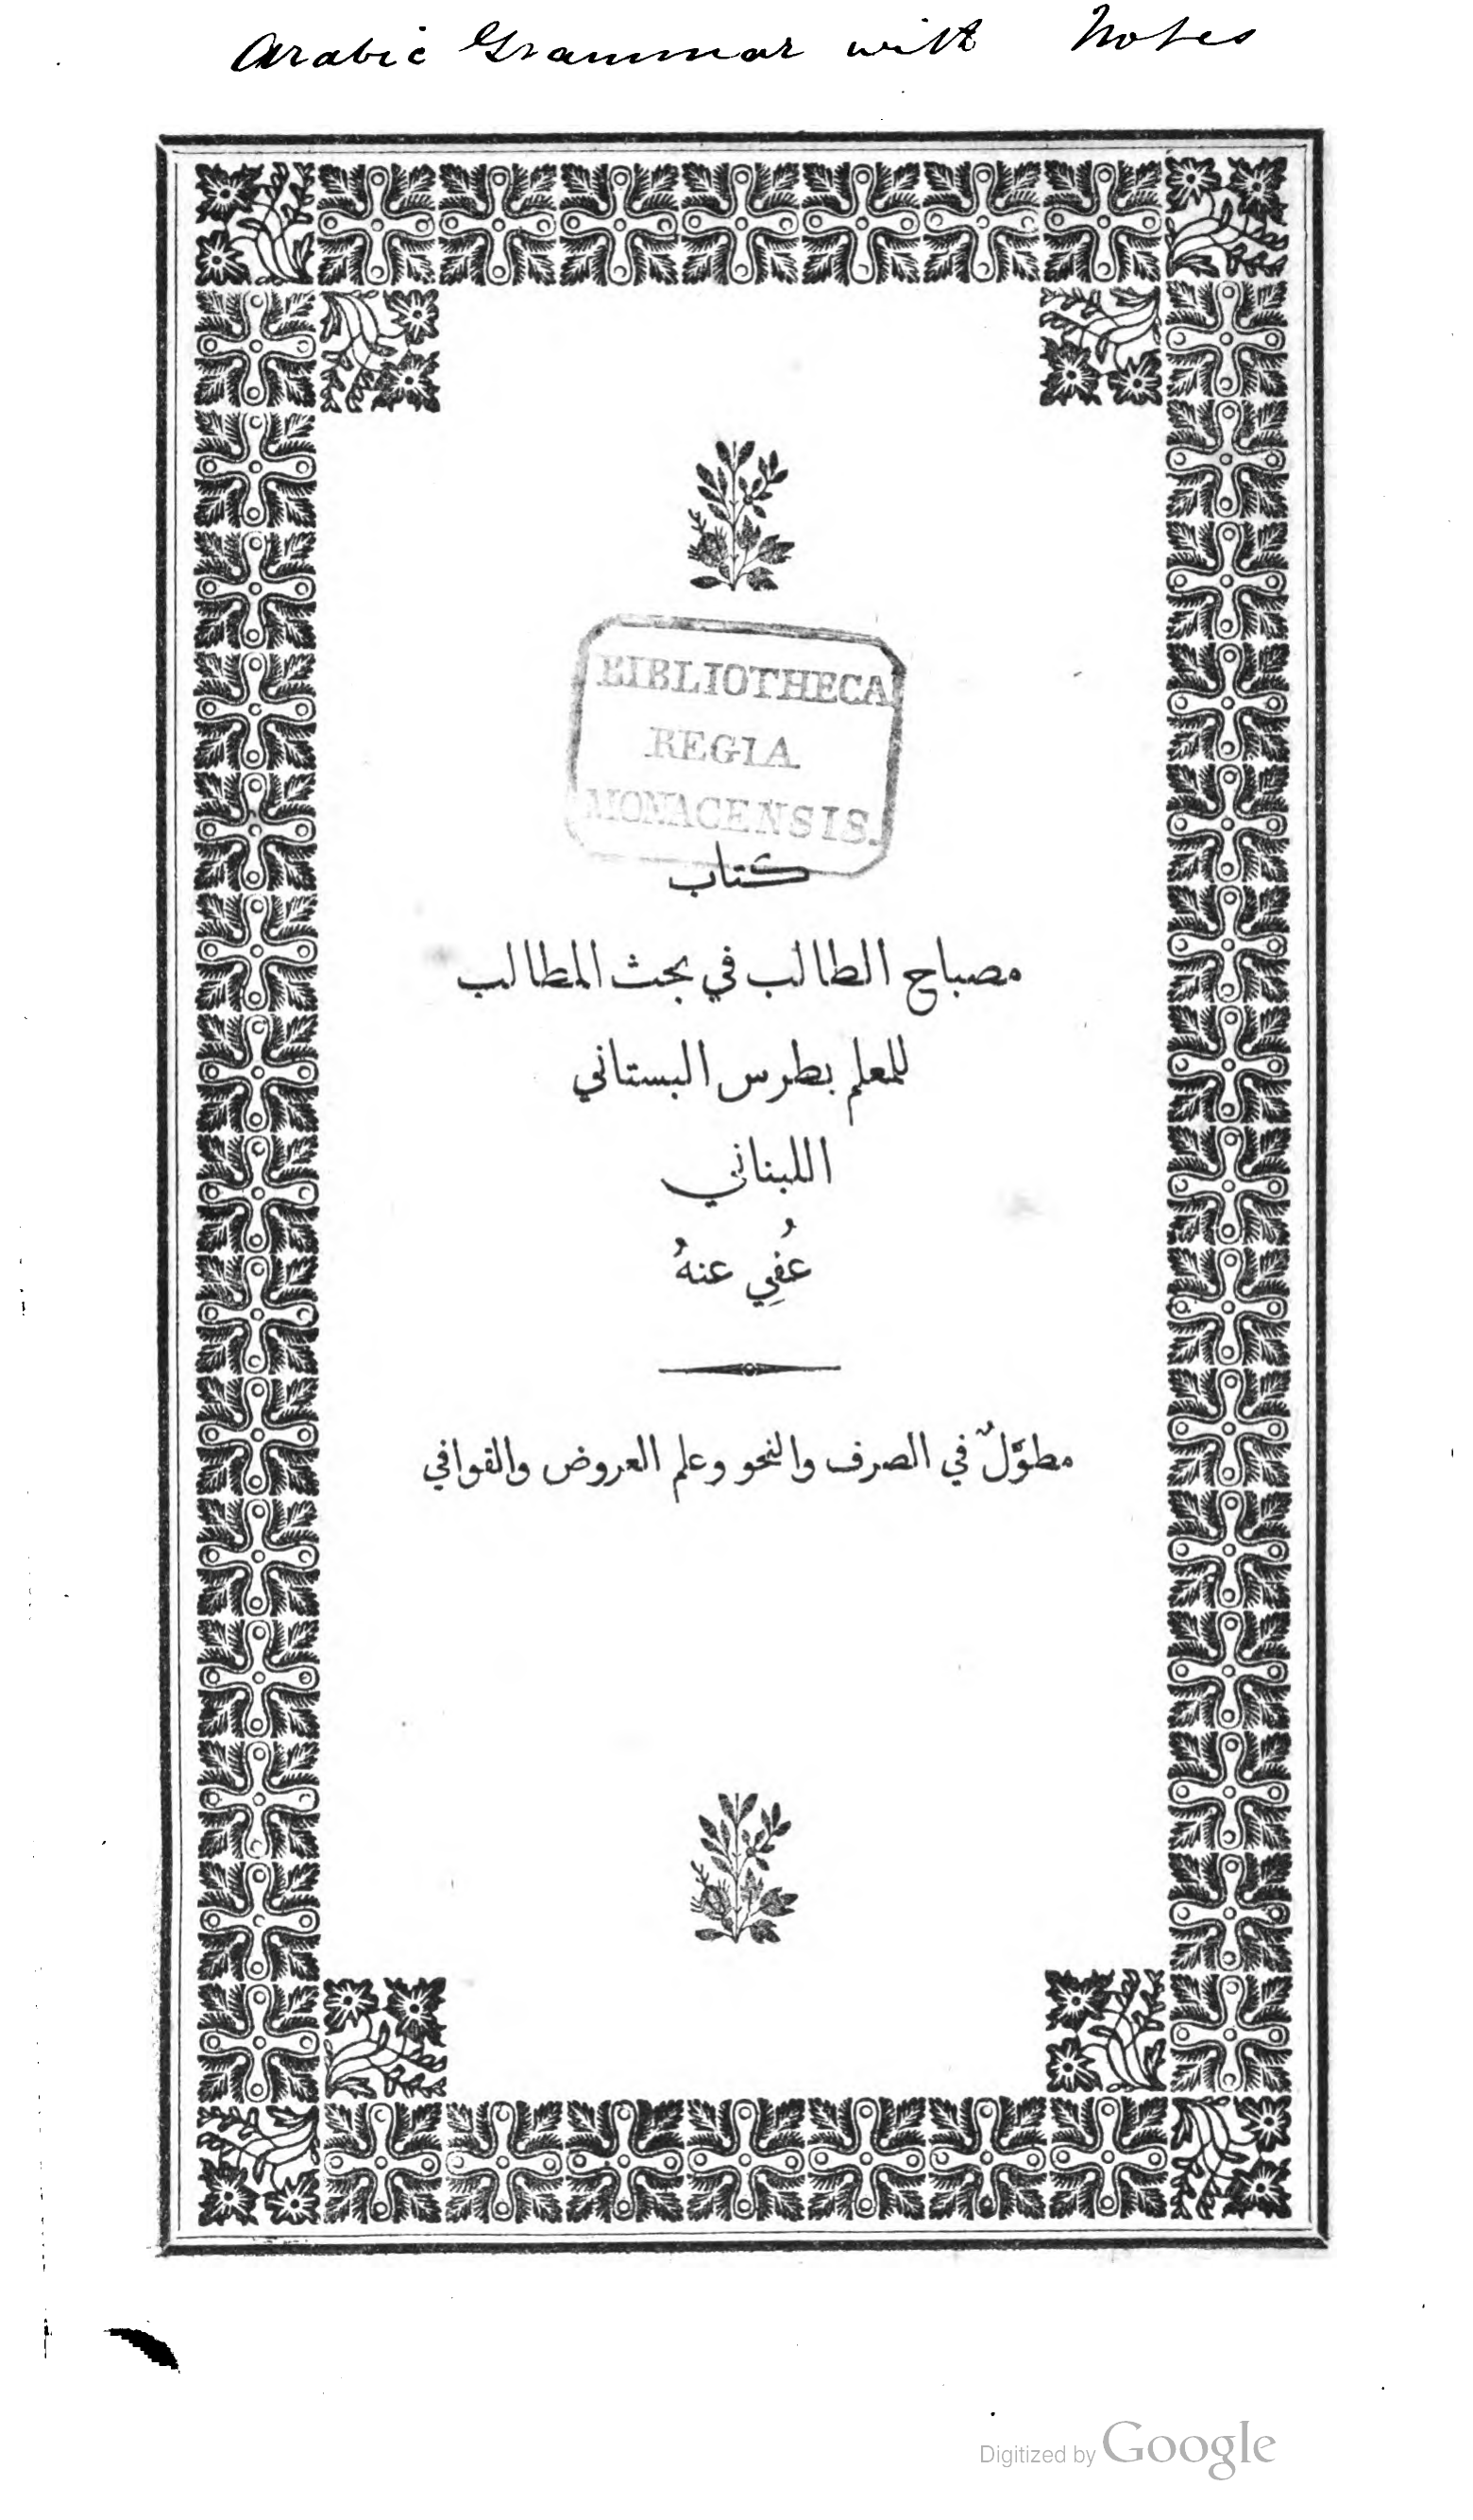 Arabic Grammar with Notes
BIBLIOTHECA
REGIA
MONACENSIS.
كتاب
مصباح الطالب في بحث المطالب
للمعلم بطرس البستاني
اللبناني
عُفِي عنهُ
مطوَّلٌ في الصرف والنحو وعلم العروض والقوافي
Digitized by Google